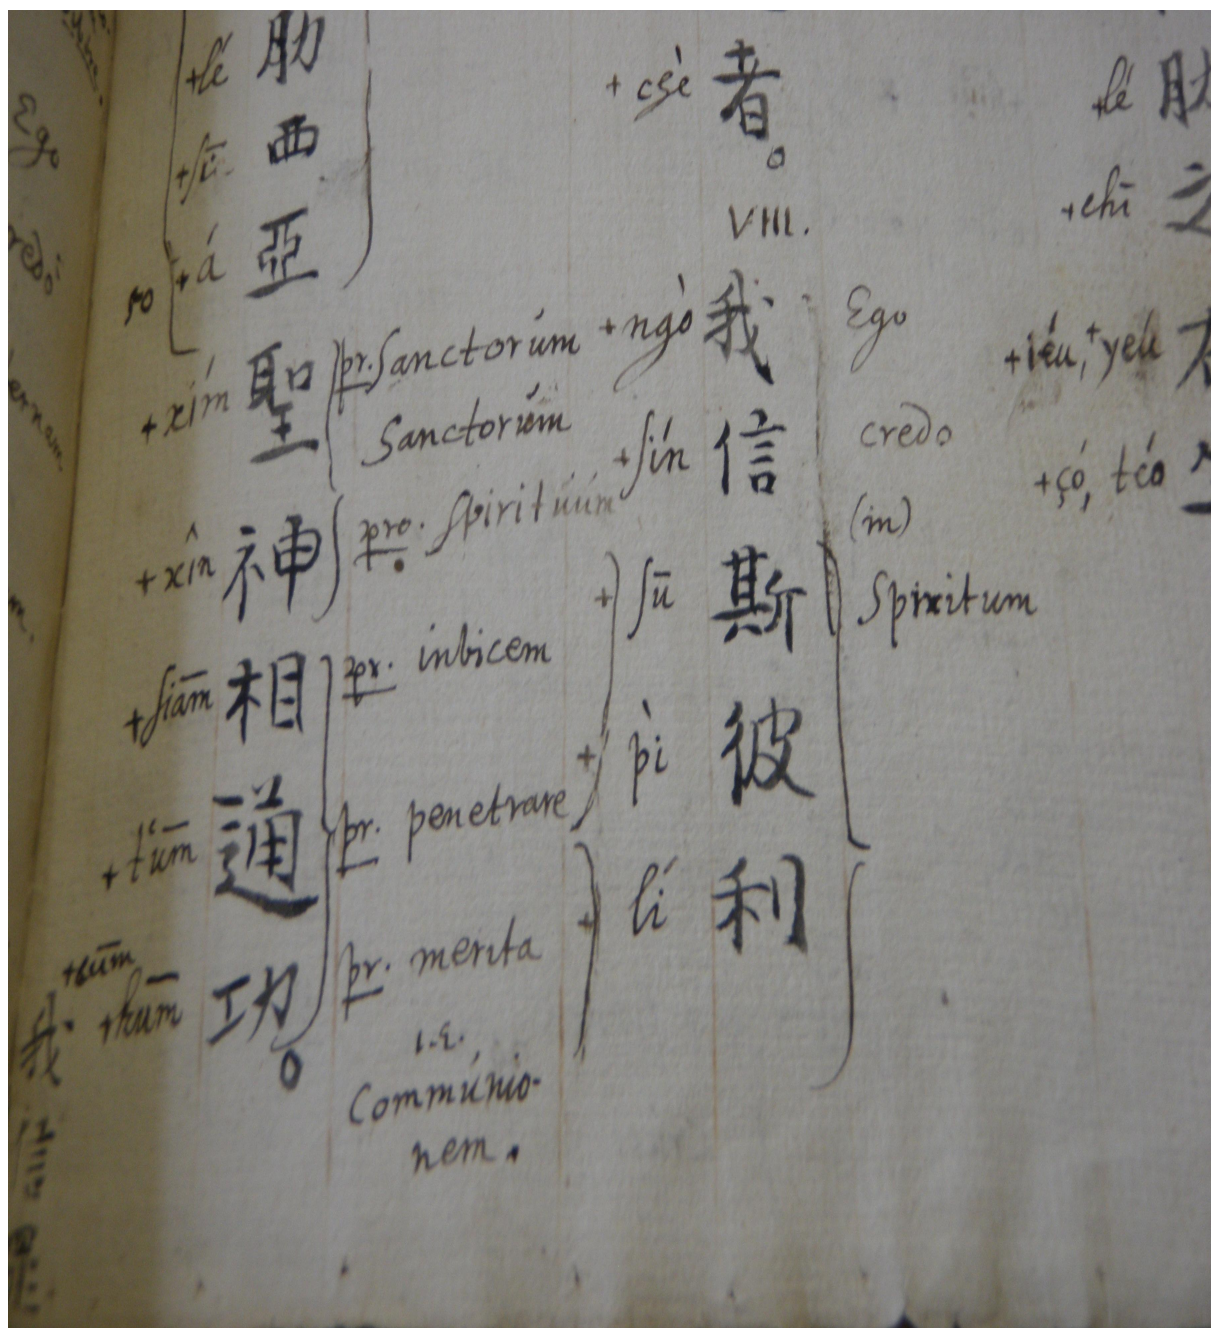 +lé 肋
+sī 西
+á 亞
+xím 聖 pr. Sanctorúm
Sanctorúm
+xîn 神 pro. Spirituúm
+siām 相 pr. inbicem
+t'ūm 通 pr. penetrare
+kūm 功 pr. merita
i.e.
Commúnio-
nem.
+csè 者。
VIII.
+ngò 我 Ego
+sín 信 credo
(in)
+sū 斯 Spiritum
+pì 彼
+lí 利
+lé 肋
+chī 之
+iéu, +yeú
+çó, tćo
Ego
我